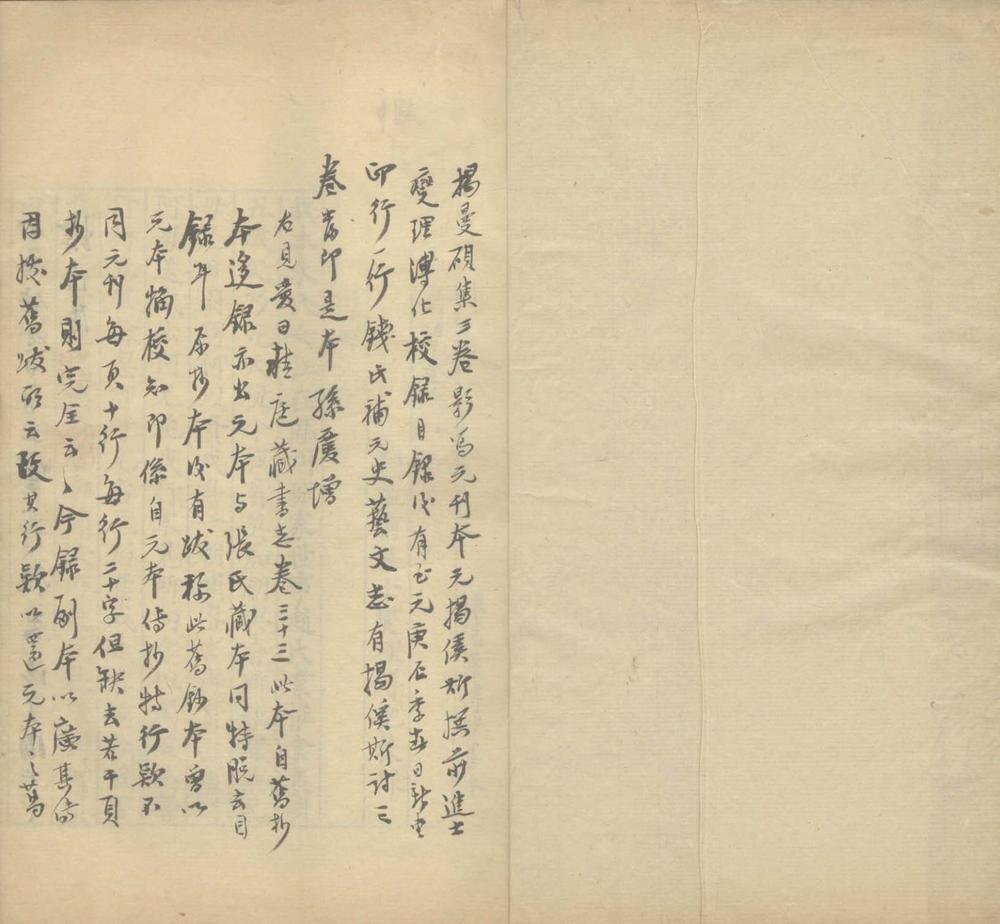 揭曼碩集三卷影寫元刊本元揭傒斯撰前進士
燮理溥化校錄目錄後有至元庚辰季春日新堂
印行一行錢氏補元史藝文志有揭傒斯詩三
卷當即是本 孫慶增
右見愛日精廬藏書志卷三十三此本自舊抄
本迻錄亦出元本与張氏藏本同特脫去目
錄耳原抄本後有跋称此舊鈔本曾以
元本猶校知即係自元本傳抄特行款不
同元刊每頁十行每行二十字但缺去若干頁
抄本則完全云〻今錄副本以廣其傳
因據舊跋所云改其行款以還元本之舊